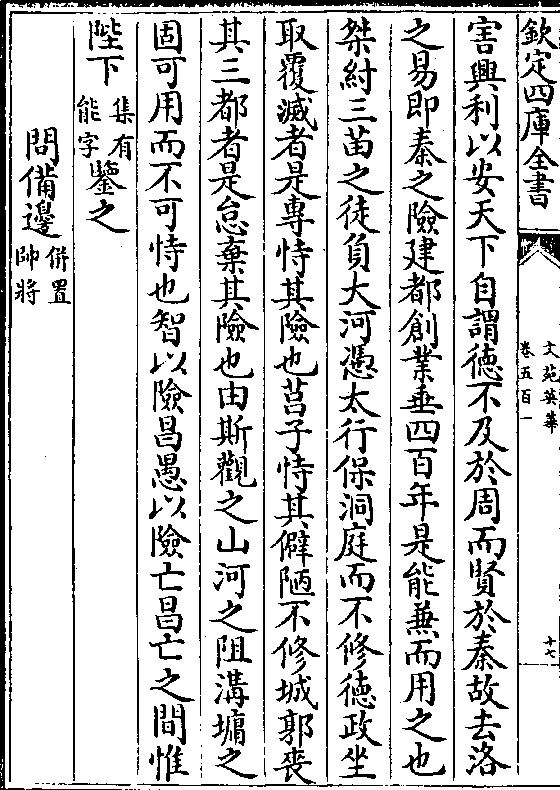 欽定四庫全書
文苑英華
卷五百一
十七
害興利以安天下自謂德不及於周而賢於秦故去洛
之易即秦之險建都創業垂四百年是能兼而用之也
桀紂三苗之徒負大河憑太行保洞庭而不修德政坐
取覆滅者是專恃其險也莒子恃其僻陋不修城郭喪
其三都者是怠棄其險也由斯觀之山河之阻溝墉之
固可用而不可恃也智以險昌愚以險亡昌亡之間惟
陛下集有能字鑒之
問備邊併置帥將